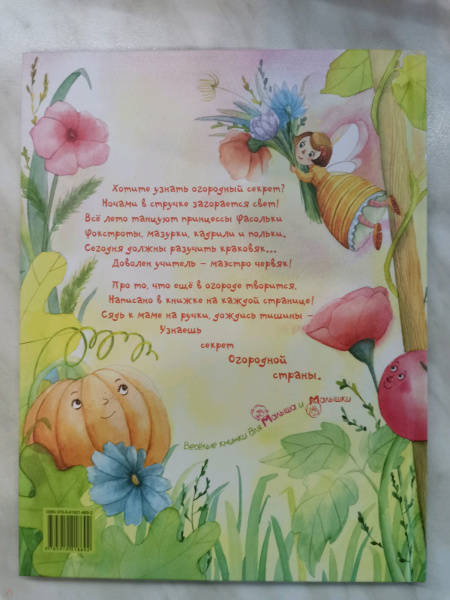 Хотите узнать огородный секрет?
Ночами в стручке загорается свет!
Всё лето танцуют принцессы Фасольки
Фокстроты, мазурки, кадрили и польки.
Сегодня должны разучить краковяк...
Доволен учитель – маэстро червяк!
Про то, что ещё в огороде творится,
Написано в книжке на каждой странице!
Сядь к маме на ручки, дождись тишины –
Узнаешь
секрет
Огородной
страны.
Весёлые книжки для Малыша и Малышки